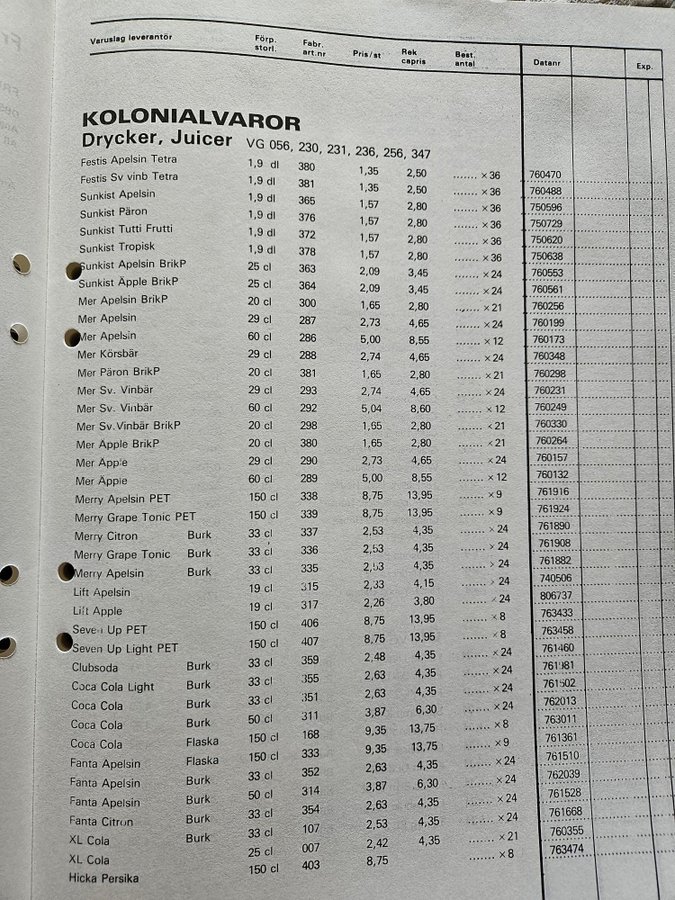 Varuslag leverantör Förp. storl. Fabr. art.nr Pris/st Rek. capris Best. antal Datanr Exp.
KOLONIALVAROR
Drycker, Juicer VG 056, 230, 231, 236, 256, 347
Festis Apelsin Tetra 1,9 dl 380 1,35 2,50 ....... × 36 760470
Festis Sv vinb Tetra 1,9 dl 381 1,35 2,50 ....... × 36 760488
Sunkist Apelsin 1,9 dl 365 1,57 2,80 ....... × 36 750596
Sunkist Päron 1,9 dl 376 1,57 2,80 ....... × 36 750729
Sunkist Tutti Frutti 1,9 dl 372 1,57 2,80 ....... × 36 750620
Sunkist Tropisk 1,9 dl 378 1,57 2,80 ....... × 36 750638
Sunkist Apelsin BrikP 25 cl 363 2,09 3,45 ....... × 24 760553
Sunkist Äpple BrikP 25 cl 364 2,09 3,45 ....... × 24 760561
Mer Apelsin BrikP 20 cl 300 1,65 2,80 ....... × 21 760256
Mer Apelsin 29 cl 287 2,73 4,65 ....... × 24 760199
Mer Apelsin 60 cl 286 5,00 8,55 ....... × 12 760173
Mer Körsbär 29 cl 288 2,74 4,65 ....... × 24 760348
Mer Päron BrikP 20 cl 381 1,65 2,80 ....... × 21 760298
Mer Sv. Vinbär 29 cl 293 2,74 4,65 ....... × 24 760231
Mer Sv. Vinbär 60 cl 292 5,04 8,60 ....... × 12 760249
Mer Sv.Vinbär BrikP 20 cl 298 1,65 2,80 ....... × 21 760330
Mer Äpple BrikP 20 cl 380 1,65 2,80 ....... × 21 760264
Mer Äpple 29 cl 290 2,73 4,65 ....... × 24 760157
Mer Äpple 60 cl 289 5,00 8,55 ....... × 12 760132
Merry Apelsin PET 150 cl 338 8,75 13,95 ....... × 9 761916
Merry Grape Tonic PET 150 cl 339 8,75 13,95 ....... × 9 761924
Merry Citron Burk 33 cl 337 2,53 4,35 ....... × 24 761890
Merry Grape Tonic Burk 33 cl 336 2,53 4,35 ....... × 24 761908
Merry Apelsin Burk 33 cl 335 2,53 4,35 ....... × 24 761882
Lift Apelsin 19 cl 315 2,33 4,15 ....... × 24 740506
Lift Apple 19 cl 317 2,26 3,80 ....... × 24 806737
Seven Up PET 150 cl 406 8,75 13,95 ....... × 8 763433
Seven Up Light PET 150 cl 407 8,75 13,95 ....... × 8 763458
Clubsoda Burk 33 cl 359 2,48 4,35 ....... × 24 761460
Coca Cola Light Burk 33 cl 355 2,63 4,35 ....... × 24 761981
Coca Cola Burk 33 cl 351 2,63 4,35 ....... × 24 761502
Coca Cola Burk 50 cl 311 3,87 6,30 ....... × 24 762013
Coca Cola Flaska 150 cl 168 9,35 13,75 ....... × 8 763011
Fanta Apelsin Flaska 150 cl 333 9,35 13,75 ....... × 9 761361
Fanta Apelsin Burk 33 cl 352 2,63 4,35 ....... × 24 761510
Fanta Apelsin Burk 50 cl 314 3,87 6,30 ....... × 24 762039
Fanta Citron Burk 33 cl 354 2,63 4,35 ....... × 24 761528
XL Cola Burk 33 cl 107 2,53 4,35 ....... × 24 761668
XL Cola 25 cl 007 2,42 4,35 ....... × 21 760355
Hicka Persika 150 cl 403 8,75 ....... × 8 763474